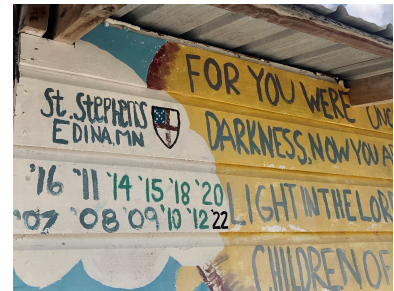 St. Stephen's
EDINA, MN
'16 '11 '14 '15 '18 '20
'07 '08 '09 '10 '12 '22
FOR YOU WERE ONCE
DARKNESS, NOW YOU
LIGHT IN THE LORD
CHILDREN OF